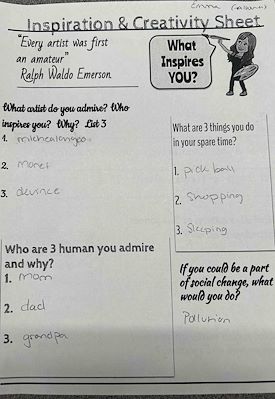 Emma
Inspiration & Creativity Sheet
"Every artist was first
an amateur"
Ralph Waldo Emerson.
What
Inspires
YOU?
What artist do you admire? Who
inspires you? Why? List 3
1. michealangeo
2. monet
3. davince
What are 3 things you do
in your spare time?
1. pick ball
2. Shopping
3. Sleeping
Who are 3 human you admire
and why?
1. mom
2. dad
3. grandpa
If you could be a part
of social change, what
would you do?
Pollution